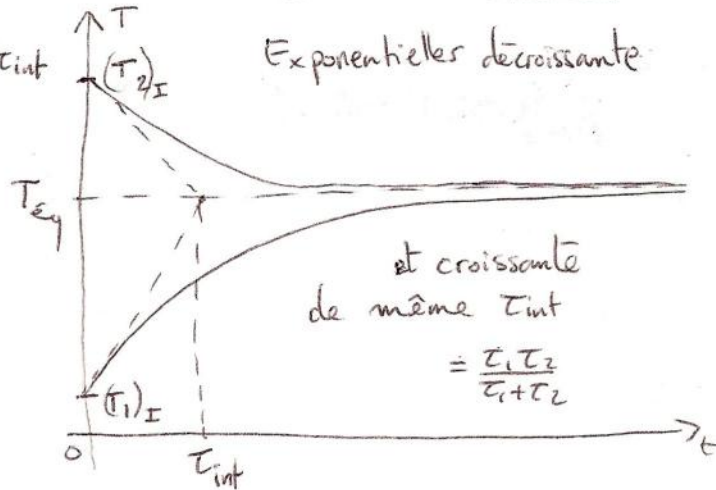 T
τint
(T2)I
Exponentielles décroissante
TEq
et croissante
de même τint
= τ1 τ2 / τ1+τ2
(T1)I
0
τint
t